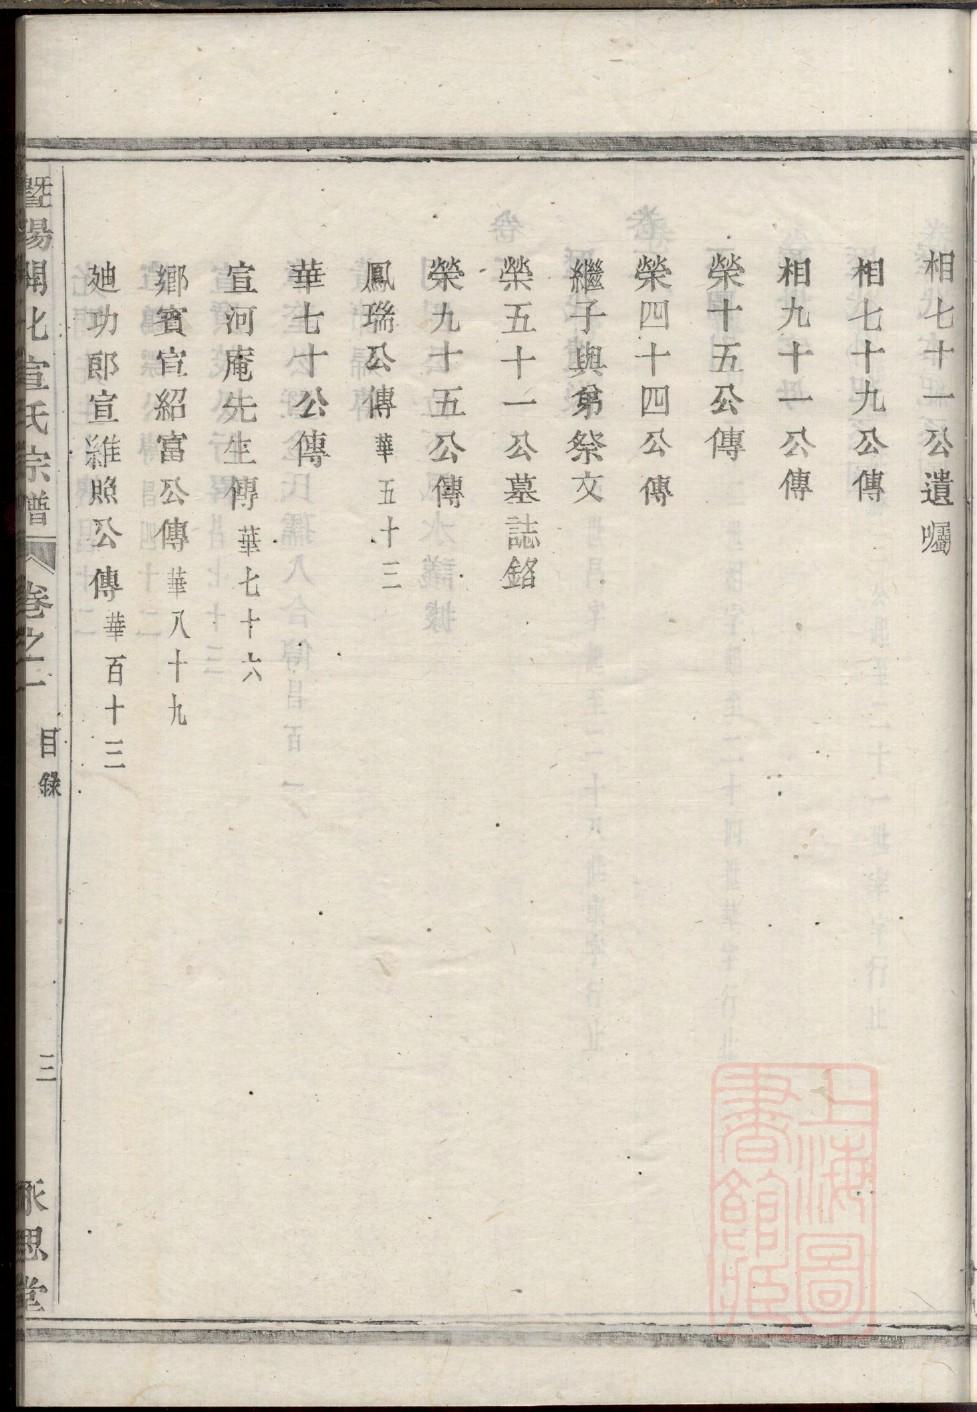 相七十一公遺囑
相七十九公傳
相九十一公傳
榮十五公傳
榮四十四公傳
繼子與弟祭文
榮五十一公墓誌銘
榮九十五公傳
鳳瑞公傳 華五十三
華七十公傳
宣河庵先生傳 華七十六
鄉賓宣紹富公傳 華八十九
廸功郎宣維照公傳 華百十三
暨陽開化宣氏宗譜 卷之一 目錄 三 永思堂
上海圖書館藏